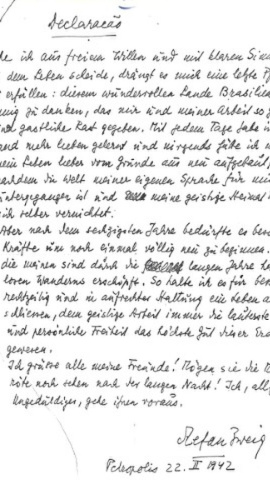 Declaracaõ
he ich aus freiem Willen und mit klaren Sinn
dem Leben scheide, drängt es mich eine letzte
erfüllen: diesem wundervollen Lande Brasilien
nig zu danken, das mir und meiner Arbeit so
und gastliche Rast gegeben. Mit jedem Tage habe i
and mehr lieben gelernt und nirgends hätte ich m
ein Leben lieber vom Grunde aus neu aufgebaut,
achdem die Welt meiner eigenen Sprache für mi
untergegangen ist und meine geistige Heimat
ich selber vernichtet.
Aber nach dem sechzigsten Jahre bedürfte es bes
Kräfte um noch einmal völlig neu zu beginnen.
die meinen sind durch die langen Jahre
losen Wanderns erschöpft. So halte ich es für bes
rechtzeitig und in aufrechter Haltung ein Leben a
schliessen, dem geistige Arbeit immer die lauterste
und persönliche Freiheit das höchste Gut dieser Erd
gewesen.
Ich grüsse alle meine Freunde! Mögen sie die
röte noch sehen nach der langen Nacht! Ich, all
Ungeduldiger, gehe ihnen voraus.
Stefan Zweig
Petropolis 22. II 1942